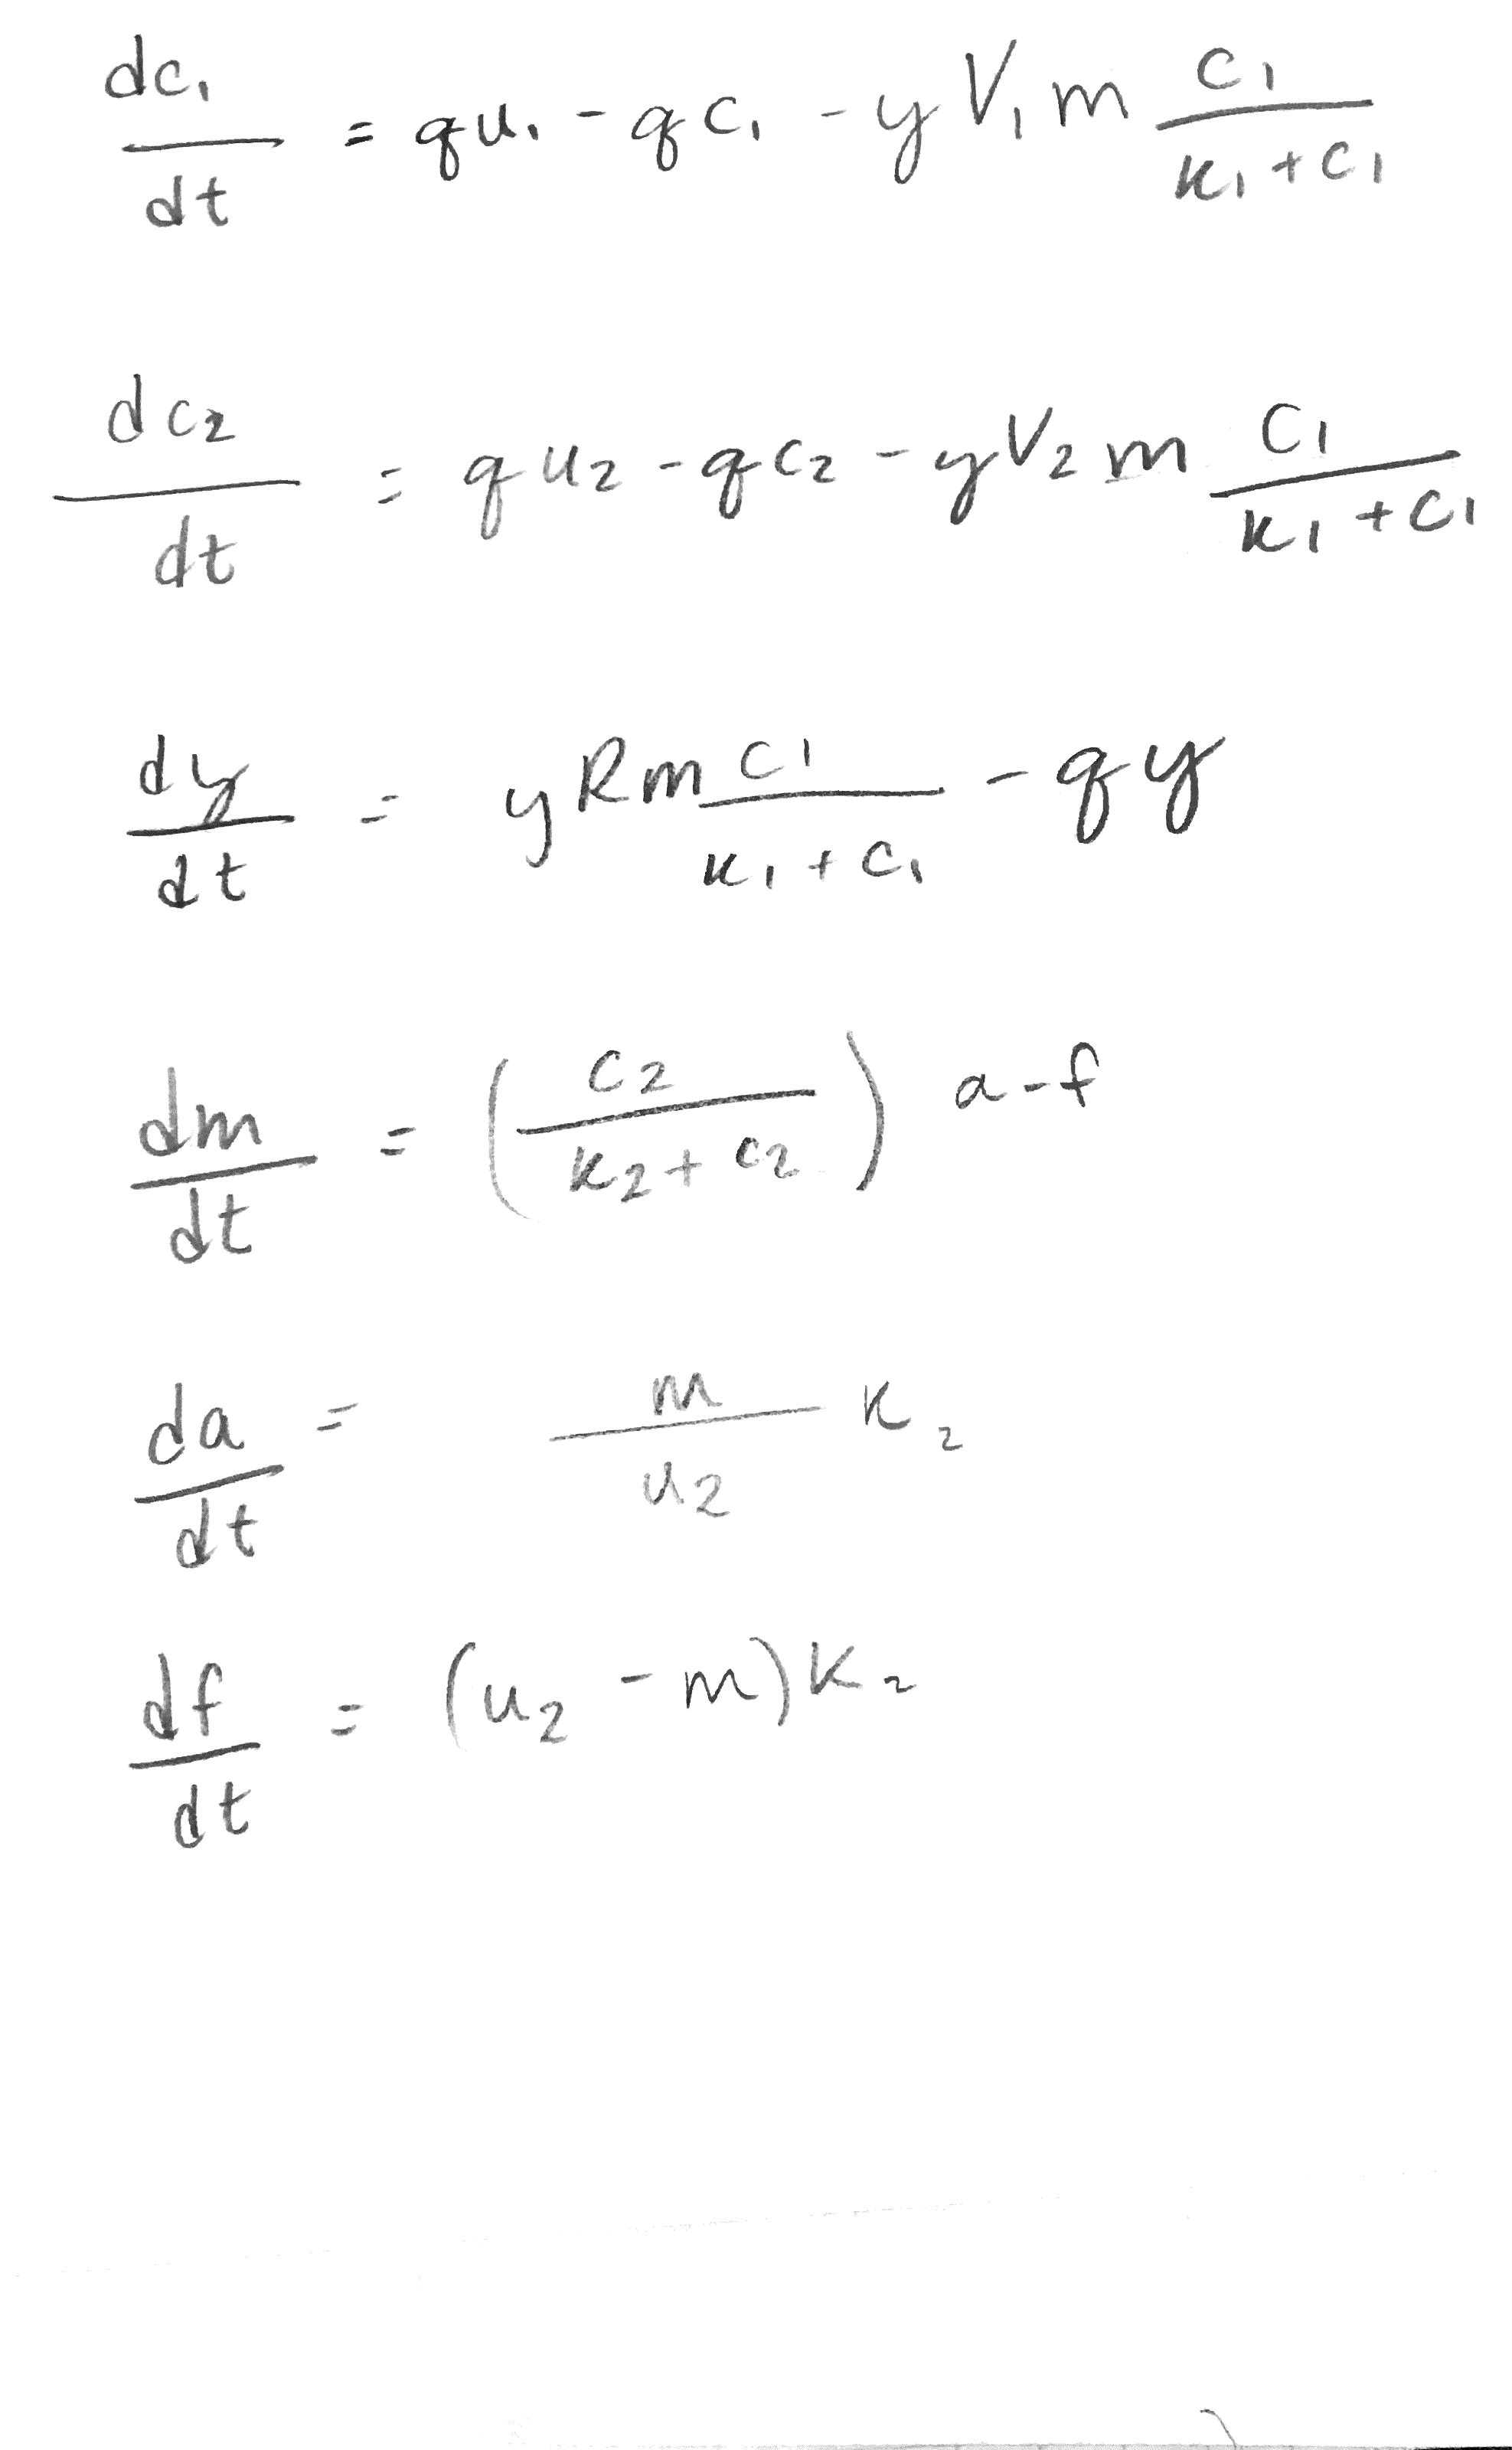 dc₁/dt = qu₁ - qc₁ - yV₁m c₁/(k₁+c₁)
dc₂/dt = qu₂ - qc₂ - yV₂m c₁/(k₁+c₁)
dy/dt = yRm c₁/(k₁+c₁) - qy
dm/dt = (c₂/(k₂+c₂)) a-f
da/dt = m/u₂ k₂
df/dt = (u₂-m)k₂